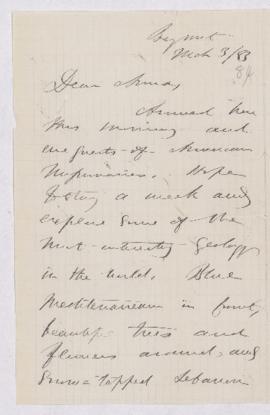 Beyrout
Mch 3/83
84
Dear Anna,
Arrived here
this morning and
are guests of American
Missionaries. Hope
to stay a week and
explore some of the
most interesting geology
in the world. Blue
Mediterranean in front,
beautiful trees and
flowers around, and
snow-topped Lebanon